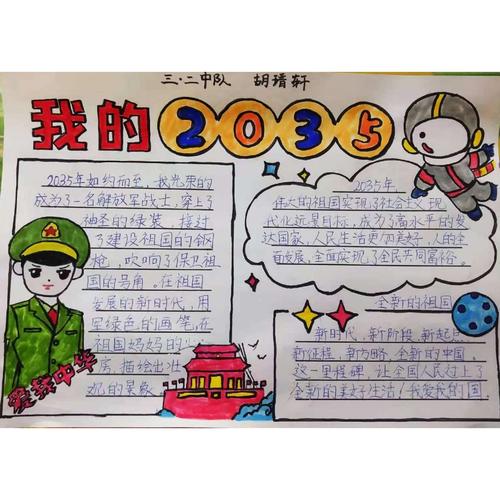 三·二中队 胡瑨轩
我的2035
2035年如约而至，我光荣的
成为了一名解放军战士，穿上了
神圣的绿装，接过
了建设祖国的钢
枪，吹响了保卫祖
国的号角。在祖国
发展的新时代，用
军绿色的画笔，在
祖国妈妈的
房，描绘出壮
观的景象
爱我中华
2035年，
伟大的祖国实现了社会主义现
代化远景目标，成为了高水平的发
达国家，人民生活更加美好，人的全
面发展，全面实现了全民共同富裕。
全新的祖国
新时代，新阶段，新起点
新征程，新方略，全新的中国，
这一里程碑，让全国人民过上了
全新的美好生活！我爱我的国。